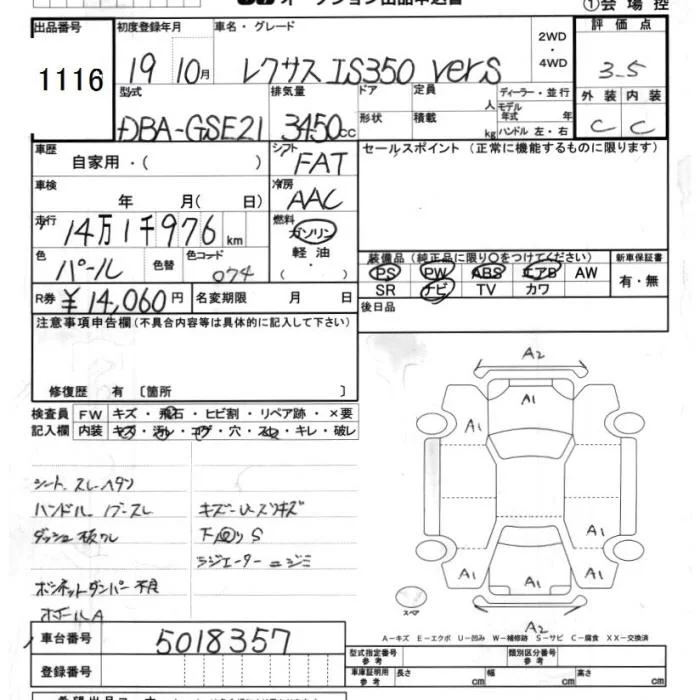 オークション出品申込書
①会場控
出品番号 初度登録年月 車名・グレード 2WD・4WD 評価点
1116 19 10月 レクサス IS350 verS 3.5
型式 排気量 ドア 定員 人 ディーラー・並行 外装 内装
DBA-GSE21 3450cc 形状 積載 kg モデル年式 年 ハンドル 左・右 C C
車歴 シフト セールスポイント（正常に機能するものに限ります）
自家用・( ) FAT
車検 冷房
年 月( 日) AAC
走行 燃料
14万1千976km ガソリン
色 色替 色コード 軽油 装備品（純正品に限り○をつけてください） 新車保証書
パール 074 ・( ) PS PW ABS エアB AW 有・無
R券 ¥14,060円 名変期限 月 日 SR ナビ TV カワ
注意事項申告欄（不具合内容等は具体的に記入して下さい） 後日品
修復歴 有 〔箇所 〕
検査員 FW キズ・飛石・ヒビ割・リペア跡・×要
記入欄 内装 キズ・汚れ・コゲ・穴・スレ・キレ・破レ
A2
A1
A1
A1 A1 A1
A2
スペア
シート スレ ヘタリ
ハンドル
キズ
ダッシュ板ワレ
下回りS
ラジエーターニジミ
ボンネットダンパー不良
A
A－キズ E－エクボ U－凹み W－補修跡 S－サビ C－腐食 XX－交換済
車台番号 5018357 型式指定番号 参考 類別区分番号 参考
登録番号 車庫証明用 参考 長さ cm 幅 cm 高さ cm
希望出品コーナー